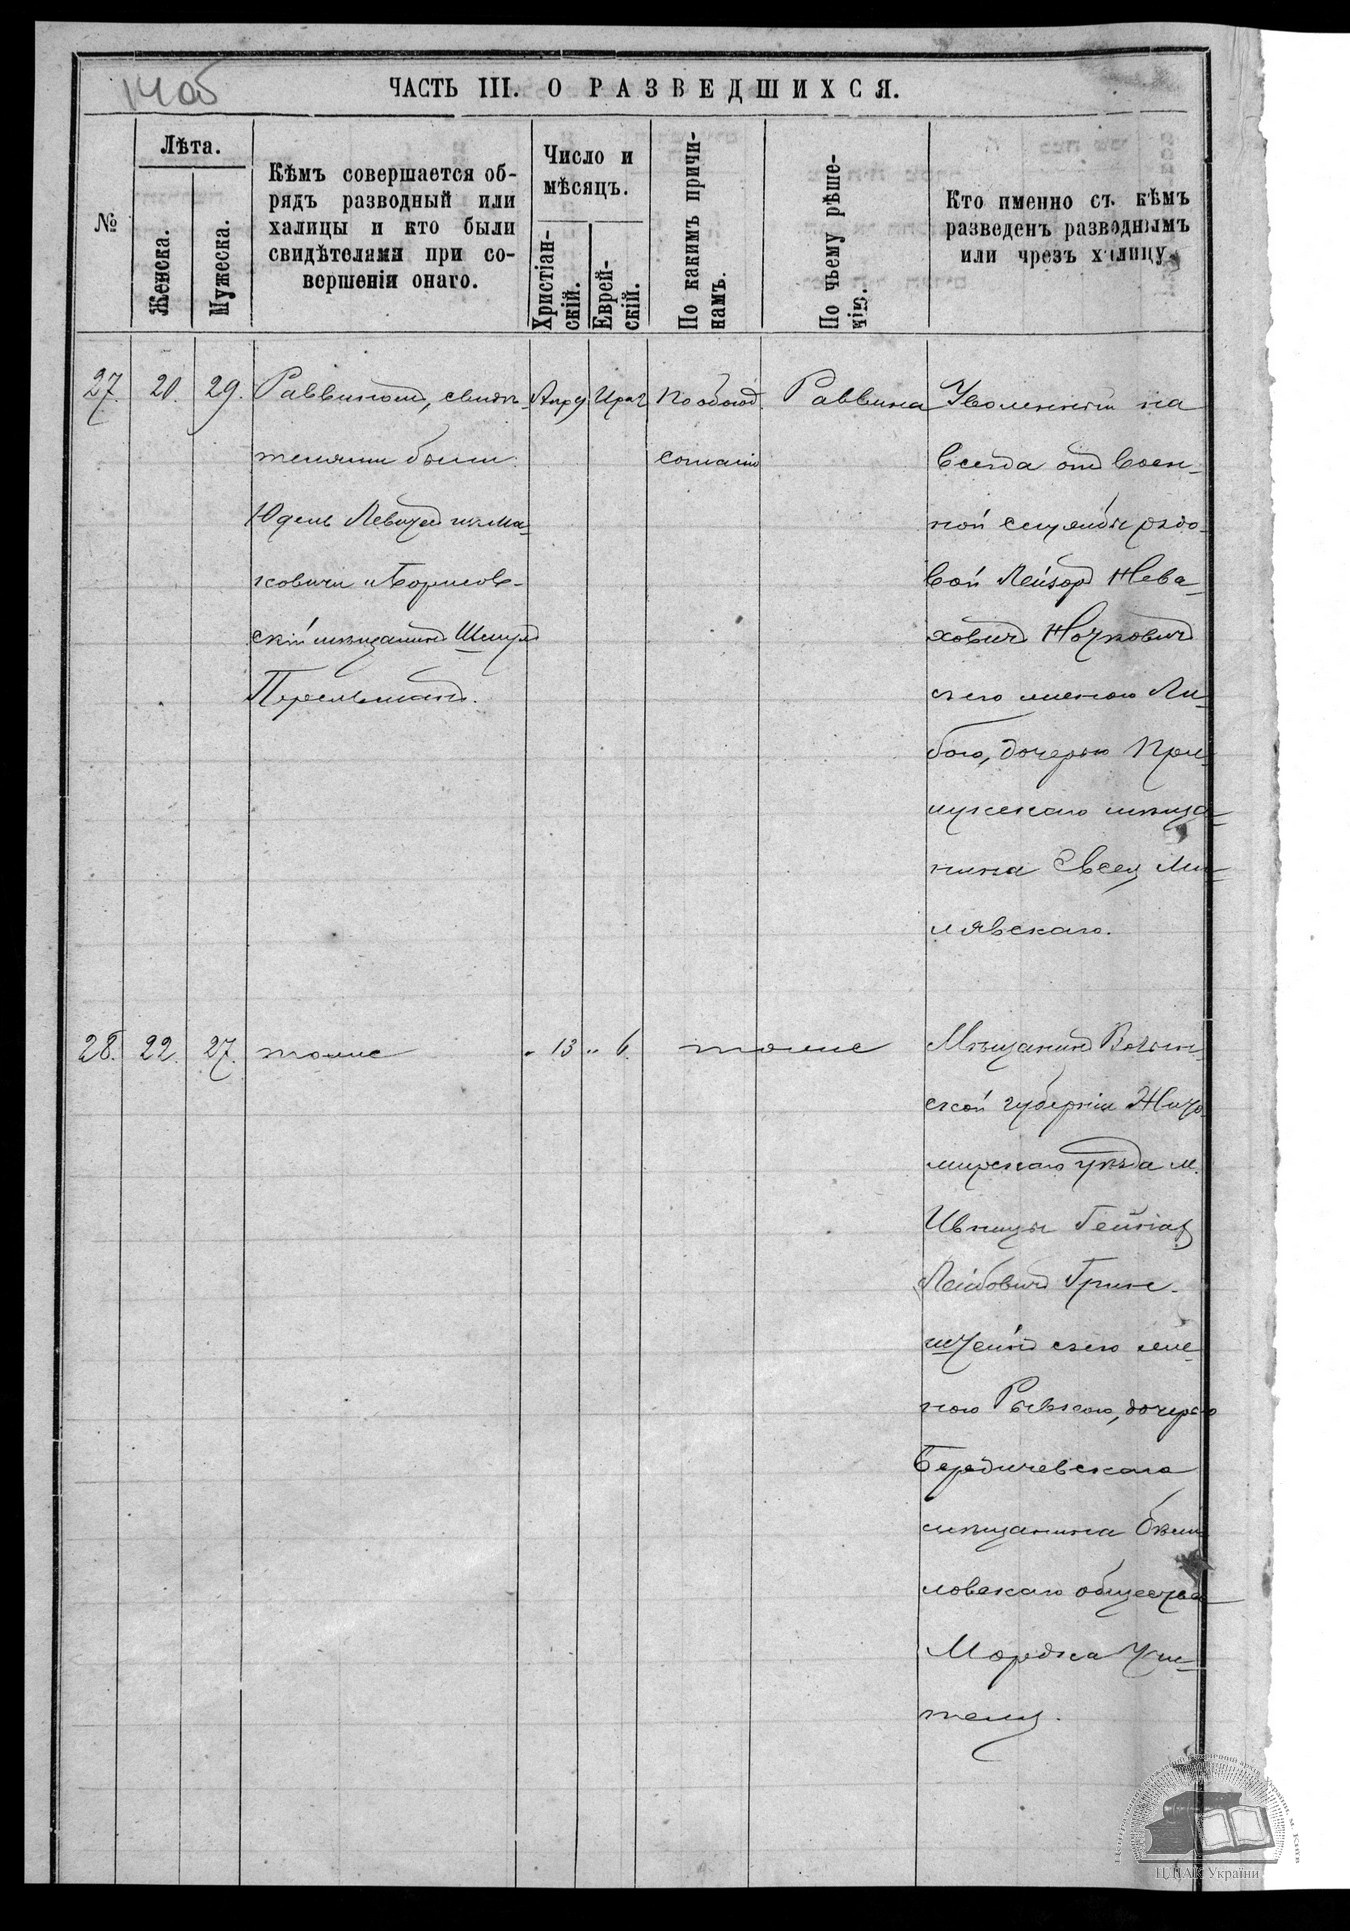 14об
ЧАСТЬ III. О РАЗВЕДШИХСЯ.
№
Лѣта.
Женска.
Мужеска.
Кѣмъ совершается об-
рядъ разводный или
халицы и кто были
свидѣтелями при со-
вершеніи онаго.
Число и
мѣсяцъ.
Христіан-
скій.
Еврей-
скій.
По какимъ причи-
намъ.
По чьему рѣше-
нію.
Кто именно съ кѣмъ
разведенъ разводнымъ
или чрезъ халицу.
27. 20. 29. Раввиномъ, свидѣ-
телями были
Юдель Левитъ
и Борисов-
скій мѣщанинъ Шмулъ
Перельманъ.
Апр 9
По обоюд.
согласію
Раввина
Уволенный на
всегда отъ воен-
ной службы рядо-
вой Лейзоръ Нева-
ховичъ Ночковичъ
съ его женою Ли-
бою, дочерью При-
лукскаго мѣща-
нина Евсея Ми-
лявскаго.
28. 22. 27. тоже
" 13 " 6.
тоже
Мѣщанинъ Волын-
ской губерніи Жито-
мирскаго уѣзда м.
Ивницы
Лейбовичъ Грин-
штейнъ съ его же-
ною Рывкою, дочерью
Бердичевскаго
мѣщанина
ловскаго общества
Мордка Учи-
теля.
ЦДІАК України